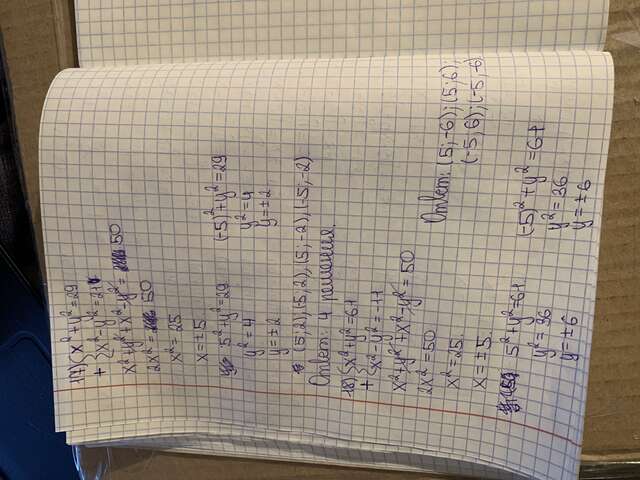 17) { x² + y² = 29
+ { x² - y² = 21
x² + y² + x² - y² = 50
2x² = 50
x² = 25
x = ± 5
5² + y² = 29
y² = 4
y = ± 2
(-5)² + y² = 29
y² = 4
y = ± 2
(5; 2), (-5; 2), (5; -2), (-5; -2)
Ответ: 4 решения.
18) { x² + y² = 61
+ { x² - y² = -11
x² + y² + x² - y² = 50
2x² = 50
x² = 25
x = ± 5.
5² + y² = 61
y² = 36
y = ± 6
(-5)² + y² = 61
y² = 36
y = ± 6
Ответ: (5; -6); (5; 6);
(-5; 6); (-5; -6)